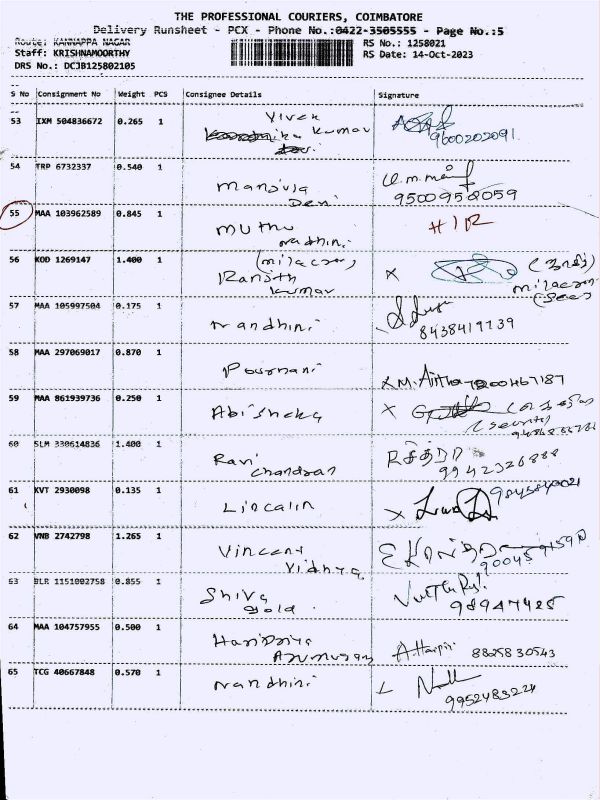 THE PROFESSIONAL COURIERS, COIMBATORE
Delivery Runsheet - PCX - Phone No.:0422-3505555 - Page No.:5
Route: KANNAPPA NAGAR RS No.: 1258021
Staff: KRISHNAMOORTHY RS Date: 14-Oct-2023
DRS No.: DCJB125802105
S No Consignment No Weight PCS Consignee Details Signature
53 IXM 504836672 0.265 1 Vivek
Kumar 9600202091
54 TRP 6732337 0.540 1
Manjula
Devi 9500958059
55 MAA 103962589 0.845 1
Muthu
nadhini
56 KOD 1269147 1.400 1 (milacron)
Ranjith
Kumar
57 MAA 105997504 0.175 1
Nandhini 8438419739
58 MAA 297069017 0.870 1
Pournani 7200467187
59 MAA 861939736 0.250 1
Abisheka
(security)
60 SLM 330614836 1.400 1
Ravi
Chandran 9942326888
61 KVT 2930098 0.135 1
Lincalin
62 VNB 2742798 1.265 1
Vincent
Vidhya
63 BLR 1151002758 0.855 1
Shiva
gold 98947425
64 MAA 104757955 0.500 1
Haripriya
Arumugam 8825830543
65 TCG 40667848 0.570 1
Nandhini
9952483224